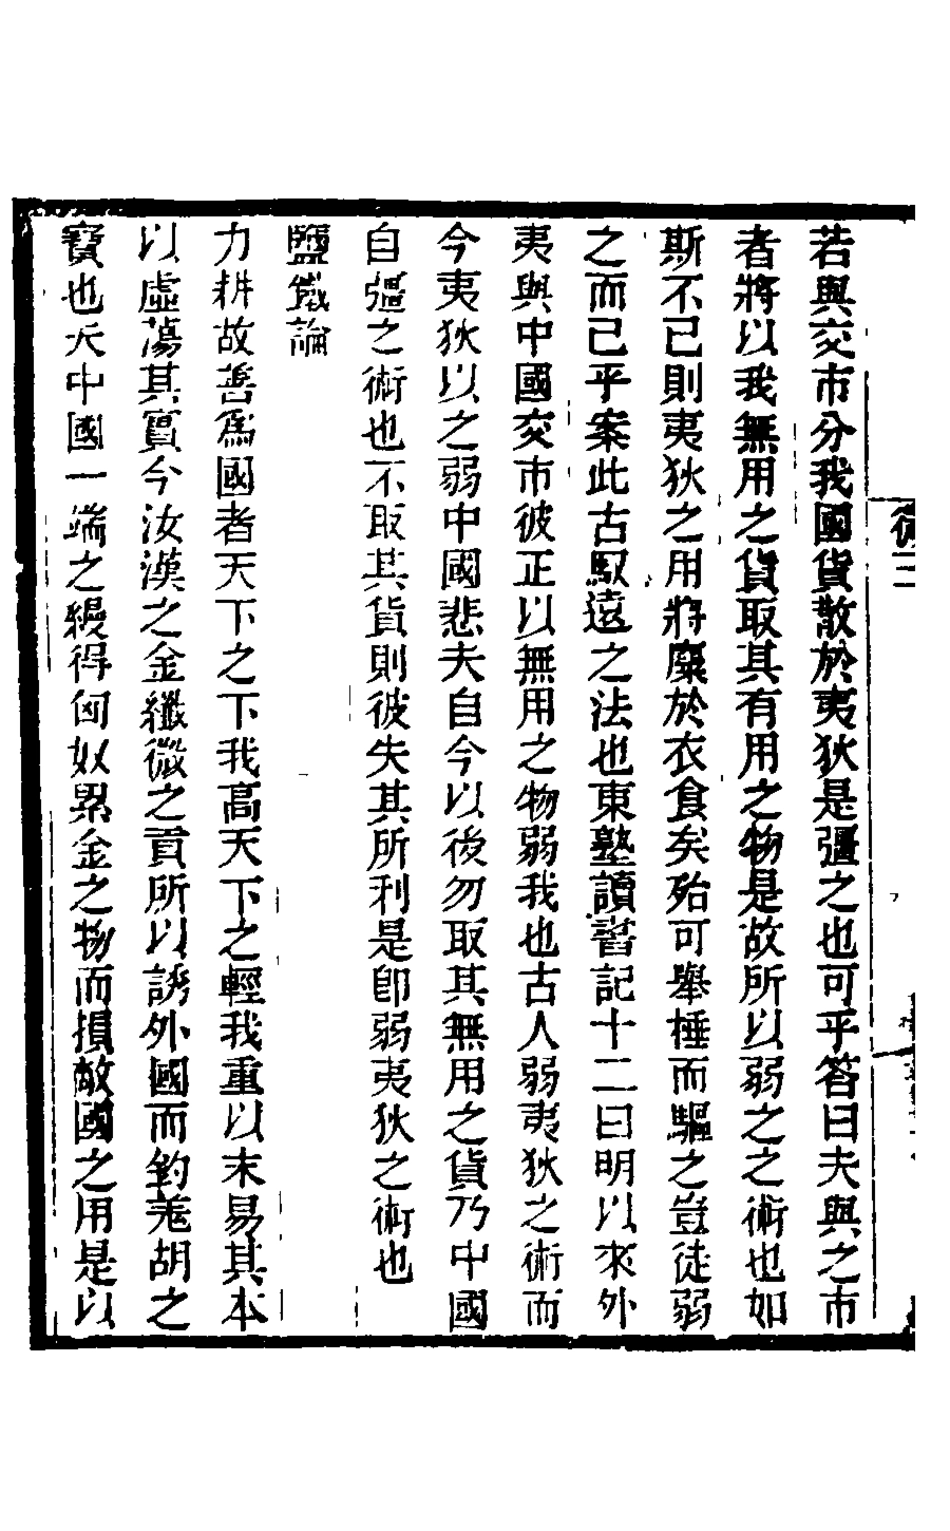 若與交市分我國貨散於夷狄是彊之也可乎答曰夫與之市
者將以我無用之貨取其有用之物是故所以弱之之術也如
斯不已則夷狄之用將糜於衣食矣殆可舉棰而驅之豈徒弱
之而已乎案此古馭遠之法也東塾讀書記十二曰明以來外
夷與中國交市彼正以無用之物弱我也古人弱夷狄之術而
今夷狄以之弱中國悲夫自今以後勿取其無用之貨乃中國
自彊之術也不取其貨則彼失其所利是卽弱夷狄之術也
鹽鐵論
力耕故善爲國者天下之下我高天下之輕我重以末易其本
以虛蕩其實今汝漢之金纖微之貢所以誘外國而釣羌胡之
寶也夫中國一端之縵得匈奴累金之物而損敵國之用是以